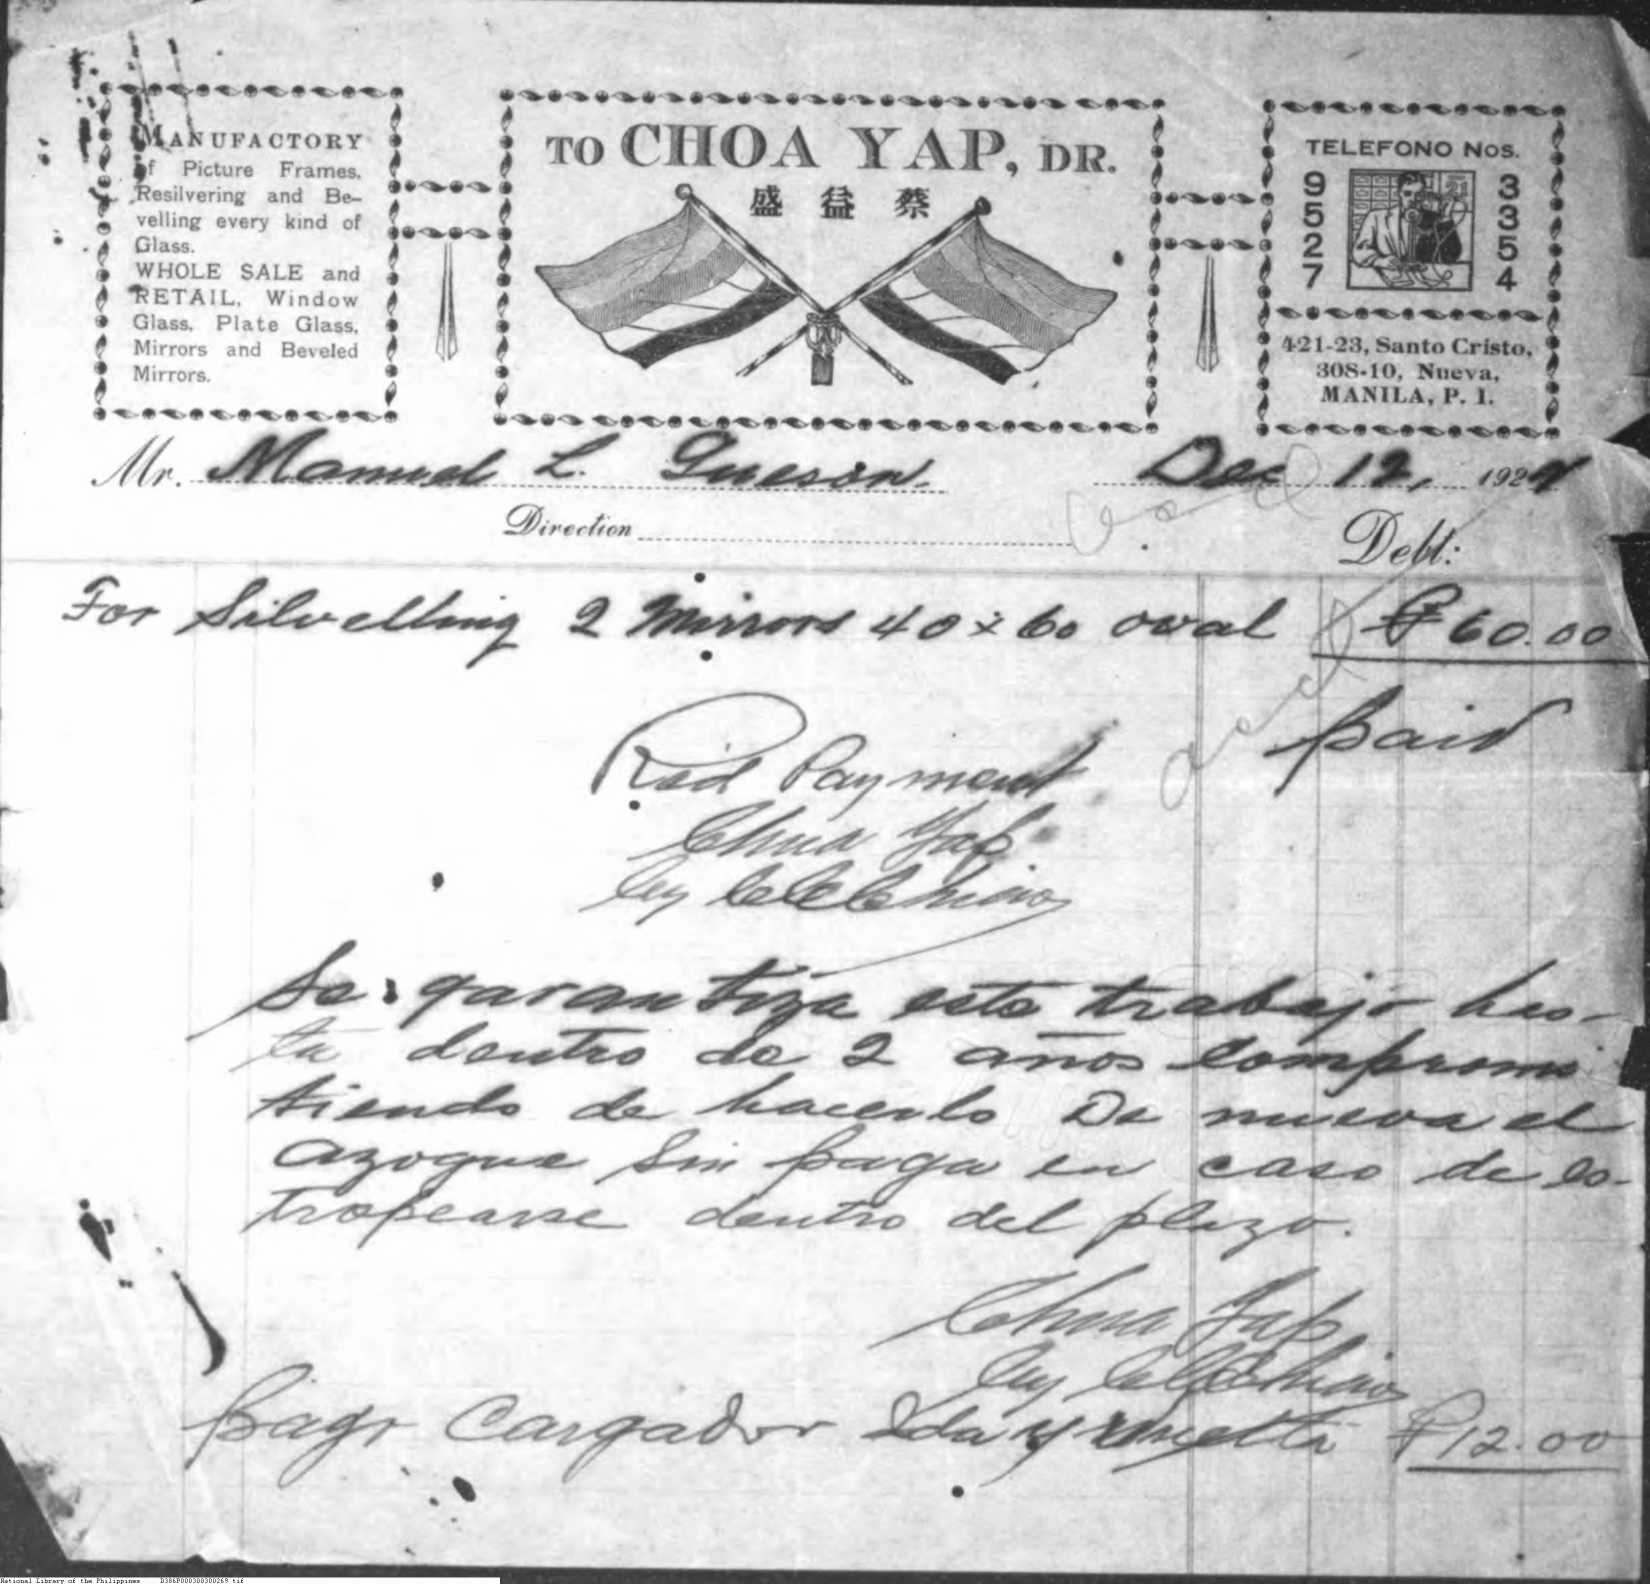 MANUFACTORY
of Picture Frames,
Resilvering and Be-
velling every kind of
Glass.
WHOLE SALE and
RETAIL, Window
Glass, Plate Glass,
Mirrors and Beveled
Mirrors.
TO CHOA YAP, DR.
盛 益 蔡
TELEFONO NOS.
9527 3354
421-23, Santo Cristo,
308-10, Nueva,
MANILA, P. I.
Mr. Manuel L. Queson. Dec 12, 1924
Direction
Debt:
For Silvelling 2 Mirrors 40 x 60 oval ₱60.00
paid
Rcd Payment
Chua Yap
by
Se garantiza este trabajo has-
ta dentro de 2 años compromi
tiendo de hacerlo De nueva el
azogue sin paga en caso de es-
tropearse dentro del plazo.
Chua Yap
by
pago Cargador Ida y vuelta ₱12.00
National Library of the Philippines D386P000300300269.tif